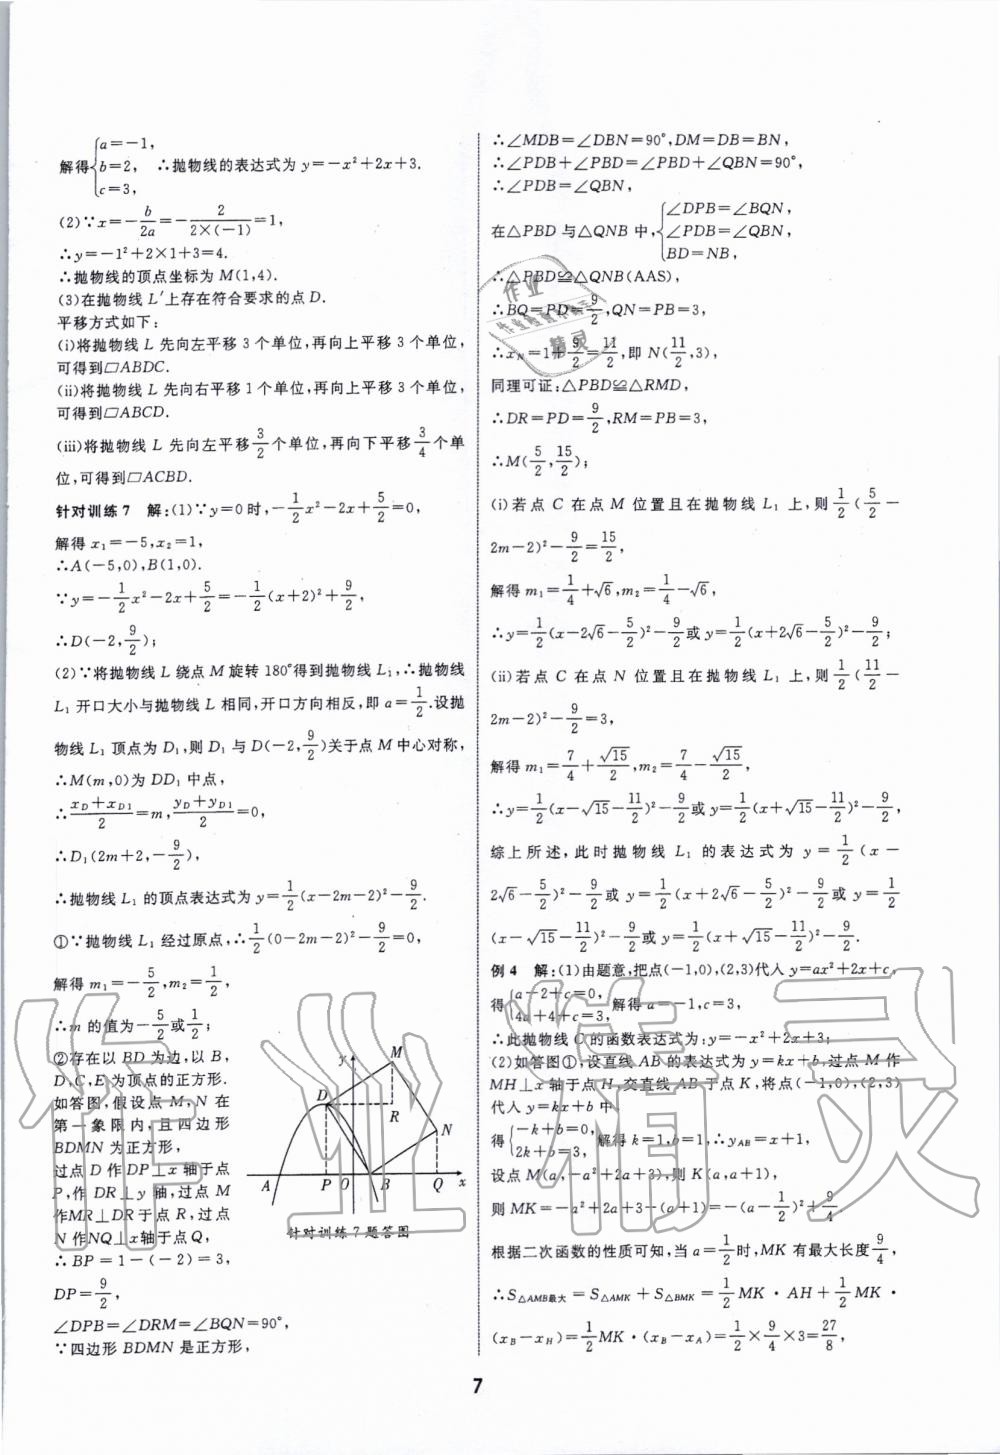 解得{a=−1, b=2, c=3, ∴抛物线的表达式为 y=−x²+2x+3.
(2)∵x=−b/2a=−2/(2×(−1))=1,
∴y=−1²+2×1+3=4.
∴抛物线的顶点坐标为 M(1,4).
(3)在抛物线 L′上存在符合要求的点 D.
平移方式如下:
(ⅰ)将抛物线 L 先向左平移 3 个单位,再向上平移 3 个单位,
可得到▱ABDC.
(ⅱ)将抛物线 L 先向右平移 1 个单位,再向上平移 3 个单位,
可得到▱ABCD.
(ⅲ)将抛物线 L 先向左平移 3/2 个单位,再向下平移 3/4 个单
位,可得到▱ACBD.
针对训练 7 解:(1)∵y=0 时,−1/2x²−2x+5/2=0,
解得 x₁=−5,x₂=1,
∴A(−5,0),B(1,0).
∵y=−1/2x²−2x+5/2=−1/2(x+2)²+9/2,
∴D(−2,9/2);
(2)∵将抛物线 L 绕点 M 旋转 180°得到抛物线 L₁,∴抛物线
L₁ 开口大小与抛物线 L 相同,开口方向相反,即 a=1/2.设抛
物线 L₁ 顶点为 D₁,则 D₁ 与 D(−2,9/2)关于点 M 中心对称,
∴M(m,0)为 DD₁ 中点,
∴(x_D+x_D1)/2=m,(y_D+y_D1)/2=0,
∴D₁(2m+2,−9/2),
∴抛物线 L₁ 的顶点表达式为 y=1/2(x−2m−2)²−9/2.
①∵抛物线 L₁ 经过原点,∴1/2(0−2m−2)²−9/2=0,
解得 m₁=−5/2,m₂=1/2,
∴m 的值为−5/2或1/2;
②存在以 BD 为边,以 B,
D,C,E 为顶点的正方形.
如答图,假设点 M,N 在
第一象限内,且四边形
BDMN 为正方形,
过点 D 作 DP⊥x 轴于点
P,作 DR⊥y 轴,过点 M
作MR⊥DR于点 R,过点
N 作NQ⊥x轴于点 Q,
∴BP=1−(−2)=3,
DP=9/2,
y
M
D
R
N
A P O B Q x
针对训练 7 题答图
∠DPB=∠DRM=∠BQN=90°,
∵四边形 BDMN 是正方形,
∴∠MDB=∠DBN=90°,DM=DB=BN,
∴∠PDB+∠PBD=∠PBD+∠QBN=90°,
∴∠PDB=∠QBN,
在△PBD 与△QNB 中,{∠DPB=∠BQN, ∠PDB=∠QBN, BD=NB,
∴△PBD≌△QNB(AAS),
∴BQ=PD=9/2,QN=PB=3,
∴x_N=1+9/2=11/2,即 N(11/2,3),
同理可证:△PBD≌△RMD,
∴DR=PD=9/2,RM=PB=3,
∴M(5/2,15/2);
(ⅰ)若点 C 在点 M 位置且在抛物线 L₁ 上,则 1/2(5/2−
2m−2)²−9/2=15/2,
解得 m₁=1/4+√6,m₂=1/4−√6,
∴y=1/2(x−2√6−5/2)²−9/2或 y=1/2(x+2√6−5/2)²−9/2;
(ⅱ)若点 C 在点 N 位置且在抛物线 L₁ 上,则 1/2(11/2−
2m−2)²−9/2=3,
解得 m₁=7/4+√15/2,m₂=7/4−√15/2,
∴y=1/2(x−√15−11/2)²−9/2或 y=1/2(x+√15−11/2)²−9/2,
综上所述,此时抛物线 L₁ 的表达式为 y=1/2(x−
2√6−5/2)²−9/2 或 y=1/2(x+2√6−5/2)²−9/2 或 y=1/2
(x−√15−11/2)²−9/2或 y=1/2(x+√15−11/2)²−9/2.
例 4 解:(1)由题意,把点(−1,0),(2,3)代入 y=ax²+2x+c,
得{a−2+c=0, 4a+4+c=3, 解得 a=−1,c=3,
∴此抛物线 C 的函数表达式为:y=−x²+2x+3;
(2)如答图①,设直线 AB 的表达式为 y=kx+b,过点 M 作
MH⊥x 轴于点 H,交直线 AB 于点 K,将点(−1,0),(2,3)
代入 y=kx+b 中,
得{−k+b=0, 2k+b=3, 解得 k=1,b=1,∴y_AB=x+1,
设点 M(a,−a²+2a+3),则 K(a,a+1),
则 MK=−a²+2a+3−(a+1)=−(a−1/2)²+9/4.
根据二次函数的性质可知,当 a=1/2时,MK 有最大长度9/4,
∴S△AMB最大=S△AMK+S△BMK=1/2MK·AH+1/2MK·
(x_B−x_H)=1/2MK·(x_B−x_A)=1/2×9/4×3=27/8,
7
作业精灵
作业
精灵